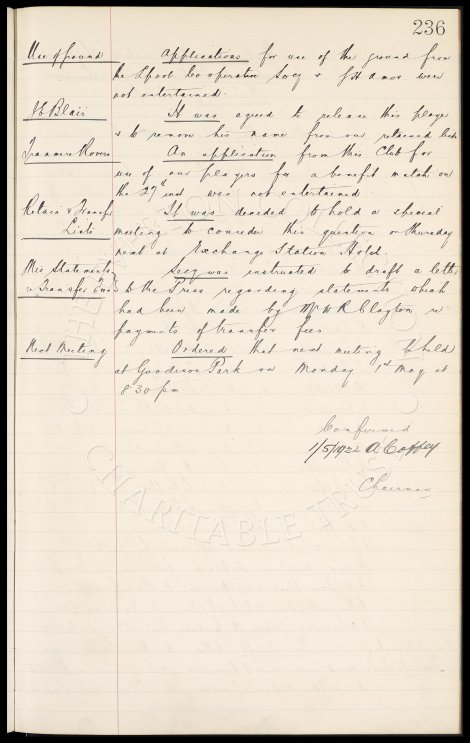 236
Use of ground Applications for use of the ground from
the Lpool Co-operative Socy & J H Amos were
not entertained.
J Blair It was agreed to release this player
& to remove his name from our retained list
Tranmere Rovers An application from this Club for
use of our players for a benefit match on
the 27th inst was not entertained.
Retain & Transfer It was decided to hold a special
Lists meeting to consider this question on Thursday
next at Exchange Station Hotel.
Mis Statements Secy was instructed to draft a letter
re Transfer Fees to the Press regarding statements which
had been made by Mr W R Clayton re
payments of transfer fees
Next Meeting Ordered that next meeting be held
at Goodison Park on Monday 1st May at
8 30 pm
Confirmed
1/5/1922 A Coffey
Chairman
CHARITABLE TRUST